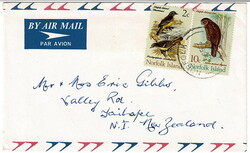 BY AIR MAIL
PAR AVION
2c
Norfolk Island
10c
Norfolk Island
Mr & Mrs Eric Gibbs,
Valley Rd.
Paihapee
N.Z. New Zealand.